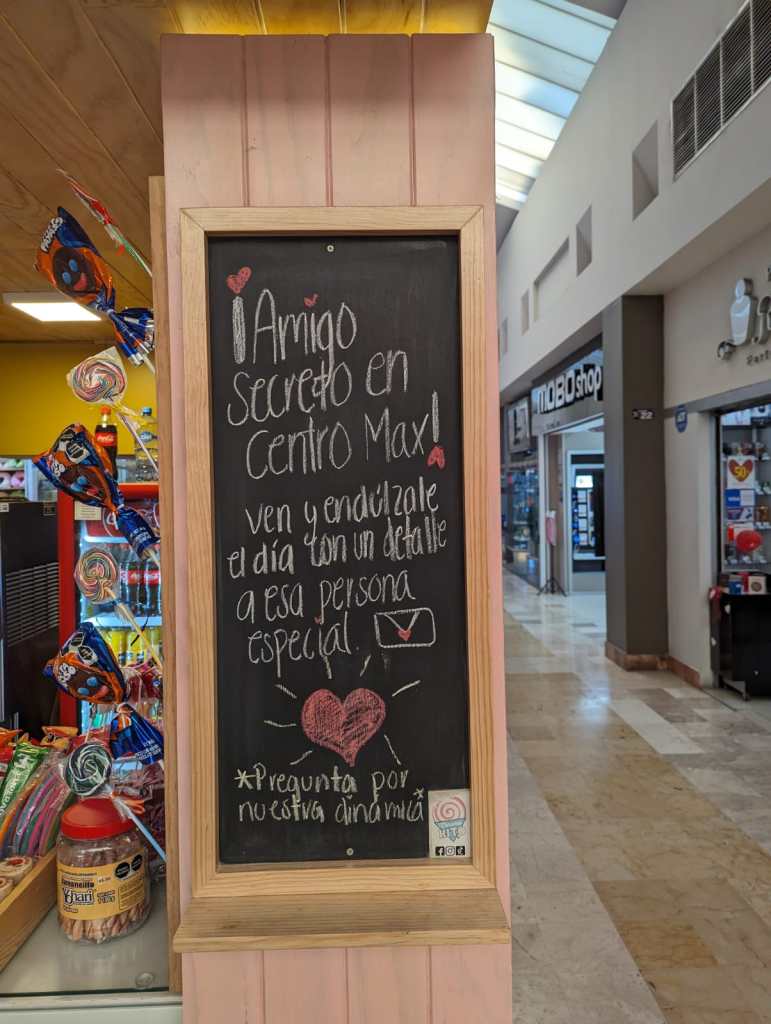 ¡Amigo
secreto en
Centro Max!
ven y endúlzale
el día con un detalle
a esa persona
especial.
*Pregunta por
nuestra dinámica*
MOBO shop
Coca-Cola
50
VISA